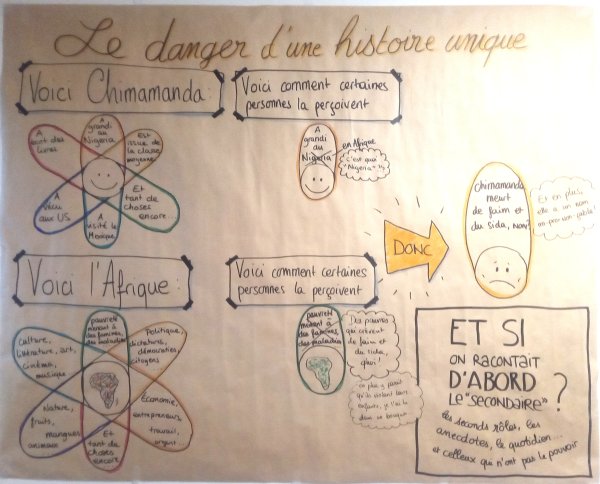 Le danger d'une histoire unique
Voici Chimamanda :
A
écrit des
livres
A
grandi
au
Nigeria
Est
issue de
la classe
moyenne
A
vécu
aux US
A
visité le
Mexique
Et
tant de
choses
encore...
Voici comment certaines
personnes la perçoivent
A
grandi
au
Nigeria
en Afrique
c'est quoi
"Nigeria" ?
Chimamanda
meurt
de faim et
du sida, non?
Et en plus,
elle a un nom
DONC
Voici l'Afrique :
Culture,
littérature, art,
cinéma,
musique
pauvreté
menant à
des famines,
des maladies
Politique,
dictature,
démocraties,
citoyens
Nature,
fruits,
mangues
animaux
Et
tant de
choses
encore
Économie,
entrepreneurs,
travail,
argent...
Voici comment certaines
personnes la perçoivent
pauvreté
menant à
des famines
des maladies
Des pauvres
qui crèvent
de faim et
du sida,
quoi!
en plus, y paraît
qu'ils violent leurs
enfants, je l'ai lu
dans un bouquin
ET SI
ON RACONTAIT
D'ABORD
LE "SECONDAIRE"
?
les seconds rôles, les
anecdotes, le quotidien...
et celleux qui n'ont pas le pouvoir